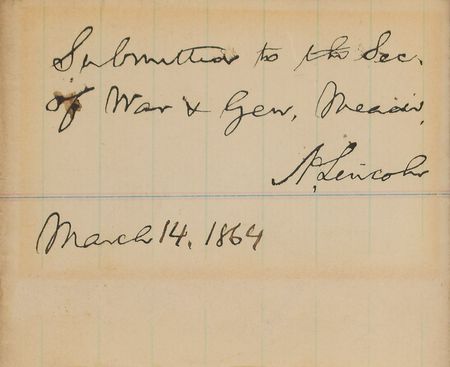 Submitted to the Sec.
of War & Gen. Meade.
A. Lincoln
March 14. 1864